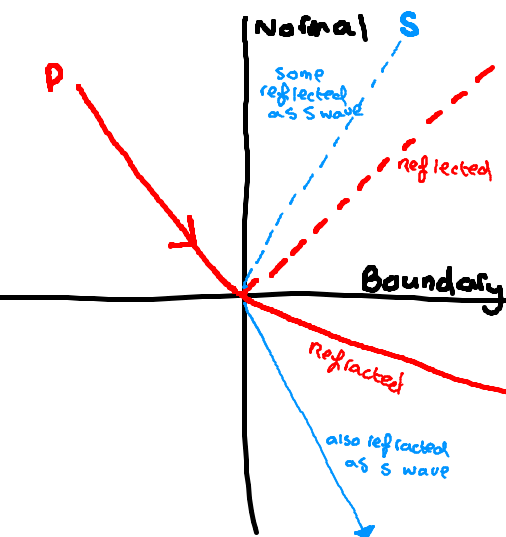 Normal
S
P
some
reflected
as s wave
reflected
Boundary
refracted
also refracted
as s wave